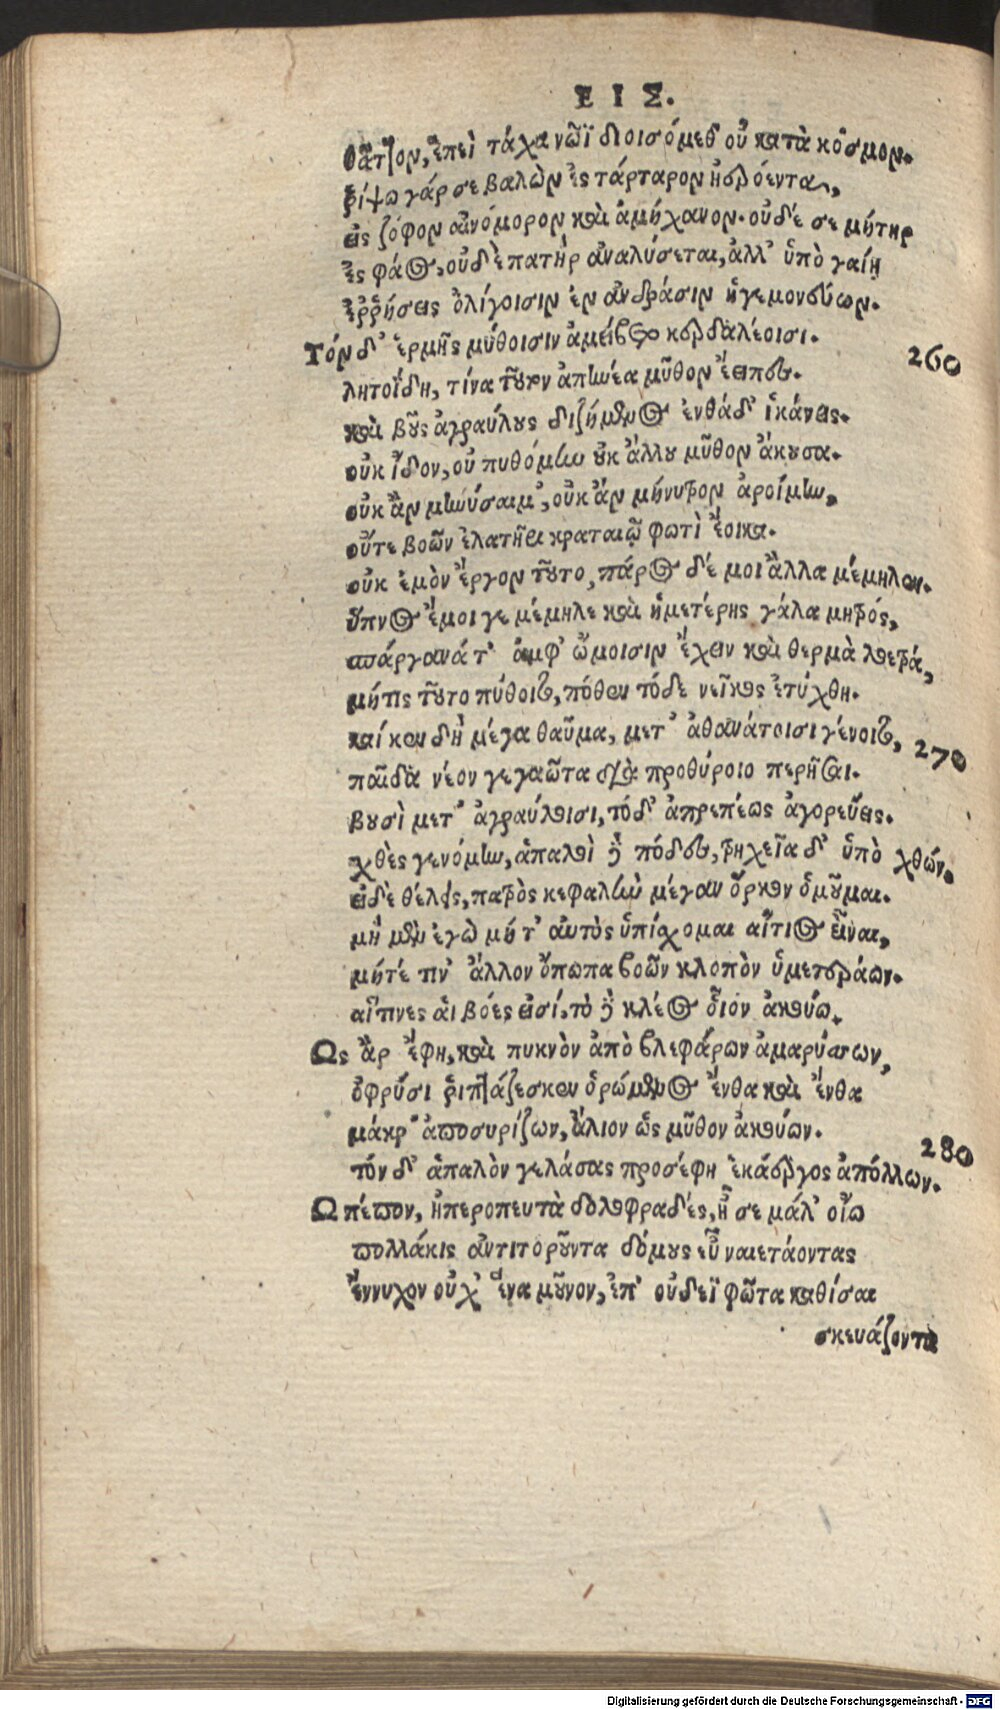 ΕΙΣ.
θᾶττον, ἐπεὶ τάχα νῶϊ διοισόμεθ᾽ οὐ κατὰ κόσμον.
ῥίψω γάρ σε βαλὼν ἐς τάρταρον ἠερόεντα,
εἰς ζόφον αἰνόμορον καὶ ἀμήχανον. οὐδέ σε μήτηρ
ἐς φάος, οὐδὲ πατὴρ ἀναλύσεται, ἀλλ᾽ ὑπὸ γαίῃ
ἐῤῥήσεις ὀλίγοισιν ἐν ἀνδράσιν ἡγεμονεύων.
Τόν δ᾽ ἑρμῆς μύθοισιν ἀμείβετο κερδαλέοισι. 260
λητοΐδη, τίνα τοῦτον ἀπηνέα μῦθον ἔειπες.
καὶ βοῦς ἀγραύλους διζήμενος ἐνθάδ᾽ ἱκάνεις.
οὐκ ἴδον, οὐ πυθόμην οὐκ ἄλλου μῦθον ἄκουσα.
οὐκ ἂν μηνύσαιμ᾽, οὐκ ἄν μήνυτρον ἀροίμην,
οὔτε βοῶν ἐλατῆρι κραταιῷ φωτὶ ἔοικα.
οὐκ ἐμὸν ἔργον τοῦτο, πάρος δέ μοι ἄλλα μέμηλεν.
ὕπνος ἔμοιγε μέμηλε καὶ ἡμετέρης γάλα μητρός,
σπάργανά τ᾽ ἀμφ᾽ ὤμοισιν ἔχειν καὶ θερμὰ λοετρά,
μήτις τοῦτο πύθοιτο, πόθεν τόδε νεῖκος ἐτύχθη.
καί κεν δὴ μέγα θαῦμα, μετ᾽ ἀθανάτοισι γένοιτο, 270
παῖδα νέον γεγαῶτα διὰ προθύροιο περῆσαι.
βουσὶ μετ᾽ ἀγραύλοισι, τό δ᾽ ἀπρεπέως ἀγορεύεις.
χθὲς γενόμην, ἁπαλοὶ δὲ πόδες, τρηχεῖα δ᾽ ὑπὸ χθών.
εἰ δὲ θέλεις, πατρὸς κεφαλὴν μέγαν ὅρκον ὀμοῦμαι.
μὴ μὲν ἐγὼ μήτ᾽ αὐτὸς ὑπίσχομαι αἴτιος εἶναι,
μήτέ τιν᾽ ἄλλον ὄπωπα βοῶν κλοπὸν ὑμετεράων.
αἵτινες αἱ βόες εἰσί, τὸ δὲ κλέος οἶον ἀκούω.
Ως ἄρ ἔφη, καὶ πυκνὸν ἀπὸ βλεφάρων ἀμαρύσσων,
ὀφρύσι ῥιπτάζεσκεν ὁρώμενος ἔνθα καὶ ἔνθα
μάκρ᾽ ἀποσυρίζων, ἅλιον ὡς μῦθον ἀκούων. 280
τόν δ᾽ ἁπαλὸν γελάσας προσέφη ἑκάεργος ἀπόλλων.
Ω πέπον, ἠπεροπευτὰ δολοφραδές, ἦ σε μάλ᾽ οἴω
πολλάκις ἀντιτοροῦντα δόμους εὖ ναιετάοντας
ἔννυχον οὐχ᾽ ἕνα μοῦνον, ἐπ᾽ οὔδεϊ φῶτα καθίσαι
σκευάζοντα
Digitalisierung gefördert durch die Deutsche Forschungsgemeinschaft - DFG